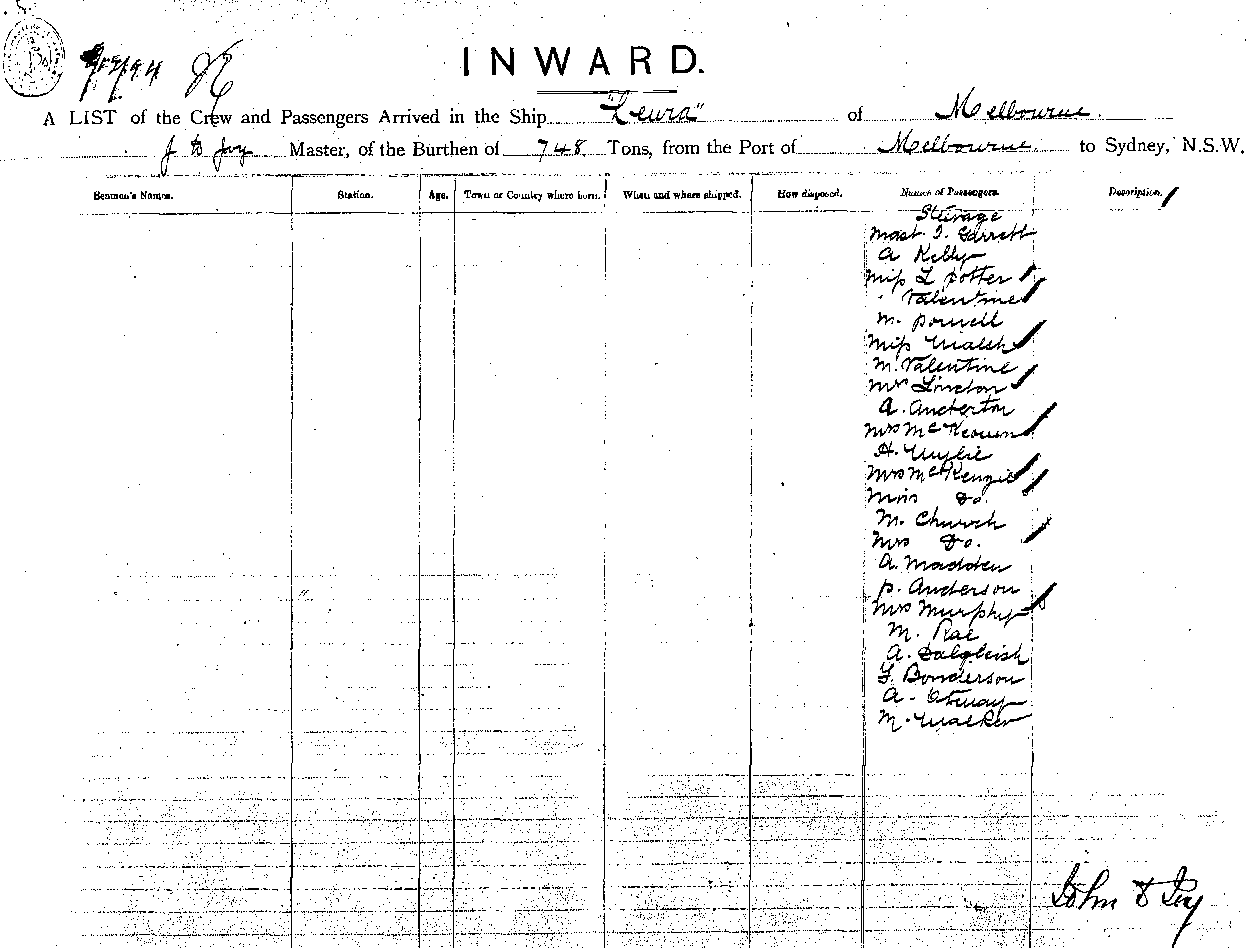 INWARD.
A LIST of the Crew and Passengers Arrived in the Ship "Leura" of Melbourne.
Master, of the Burthen of 748 Tons, from the Port of Melbourne to Sydney, N.S.W.
Seaman's Names. Station. Age. Town or Country where born. When and where shipped. How disposed. Names of Passengers. Description.
Steerage
Mast. I. Garrett
A Kelly
Miss L Potter
" Valentine
M. Powell
Miss Walsh
M. Valentine
Mrs Lincton
A. Anderton
Mrs McKeown
H. Wylie
Mrs McKenzie
Miss Do.
M. Church
Mrs Do.
A. Madden
P. Anderson
Mrs Murphy
M. Rae
A. Dalgleish
G. Bonderson
A. Otway
M. Walker
John